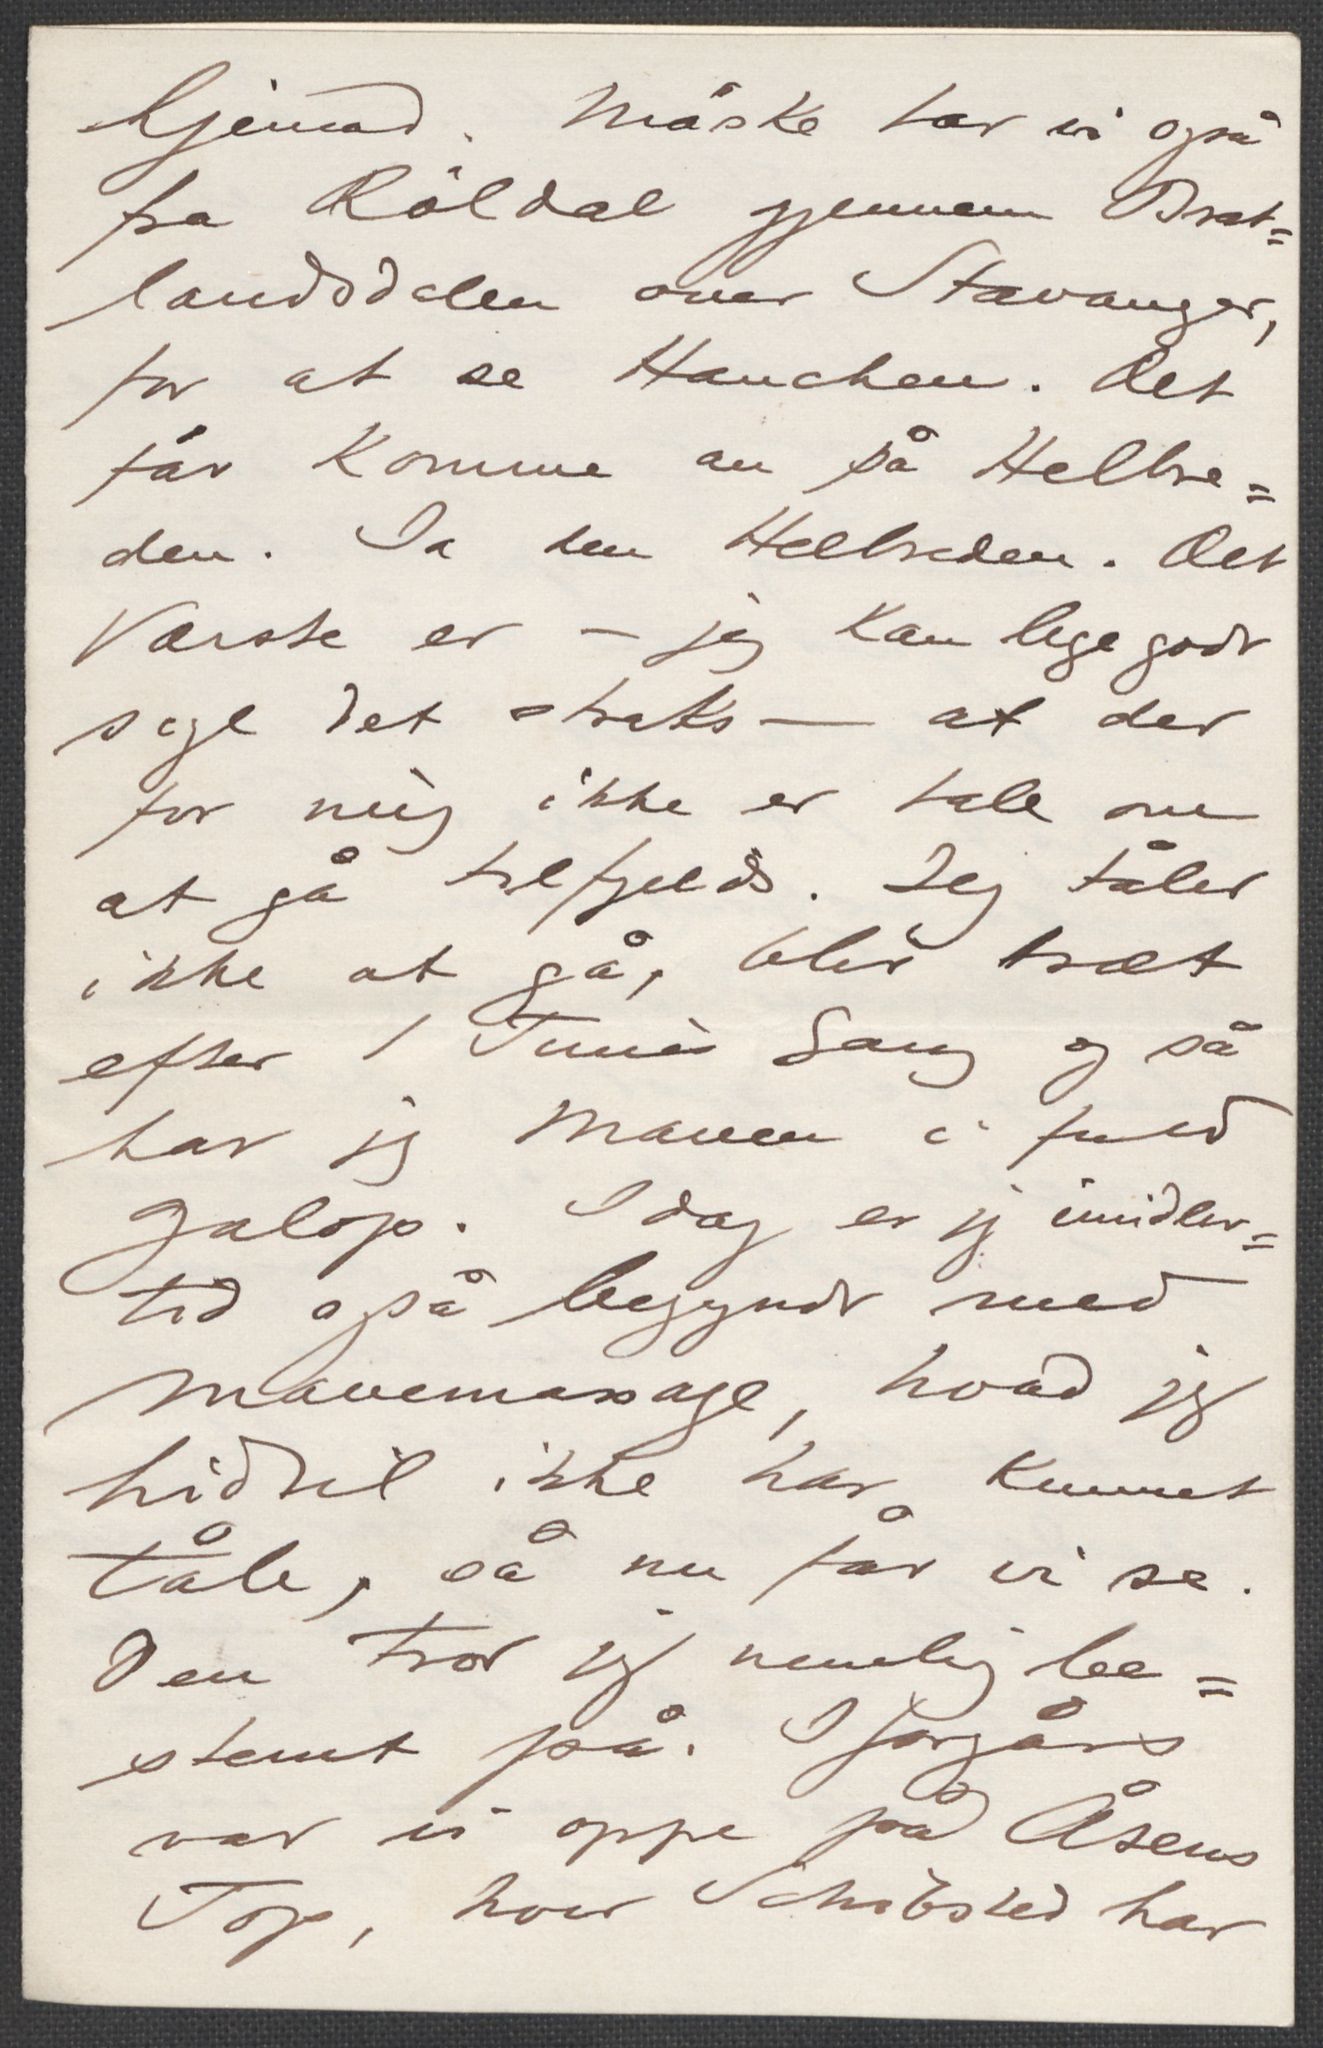 hjemad. Måske tar vi også
fra Röldal gjennem Brat=
landsdalen over Stavanger,
for at se Hanchen. Det
får komme an på Helbre=
den. Ja den Helbreden. Det
Værste er – jeg kan ligegodt
sige det straks – at der
for mig ikke er tale om
at gå tilfjelds. Jeg tåler
ikke at gå, blir træt
efter 1 Times Gang og så
har jeg Maven i fuld
Galop. Idag er jeg imidler=
tid også begyndt med
Mavemassage, hvad jeg
hidtil ikke har kunnet
tåle, så nu får vi se.
Den tror jeg nemlig be=
stemt på. Iforgårs
var vi oppe på Åsens
Top, hvor Schibsted har